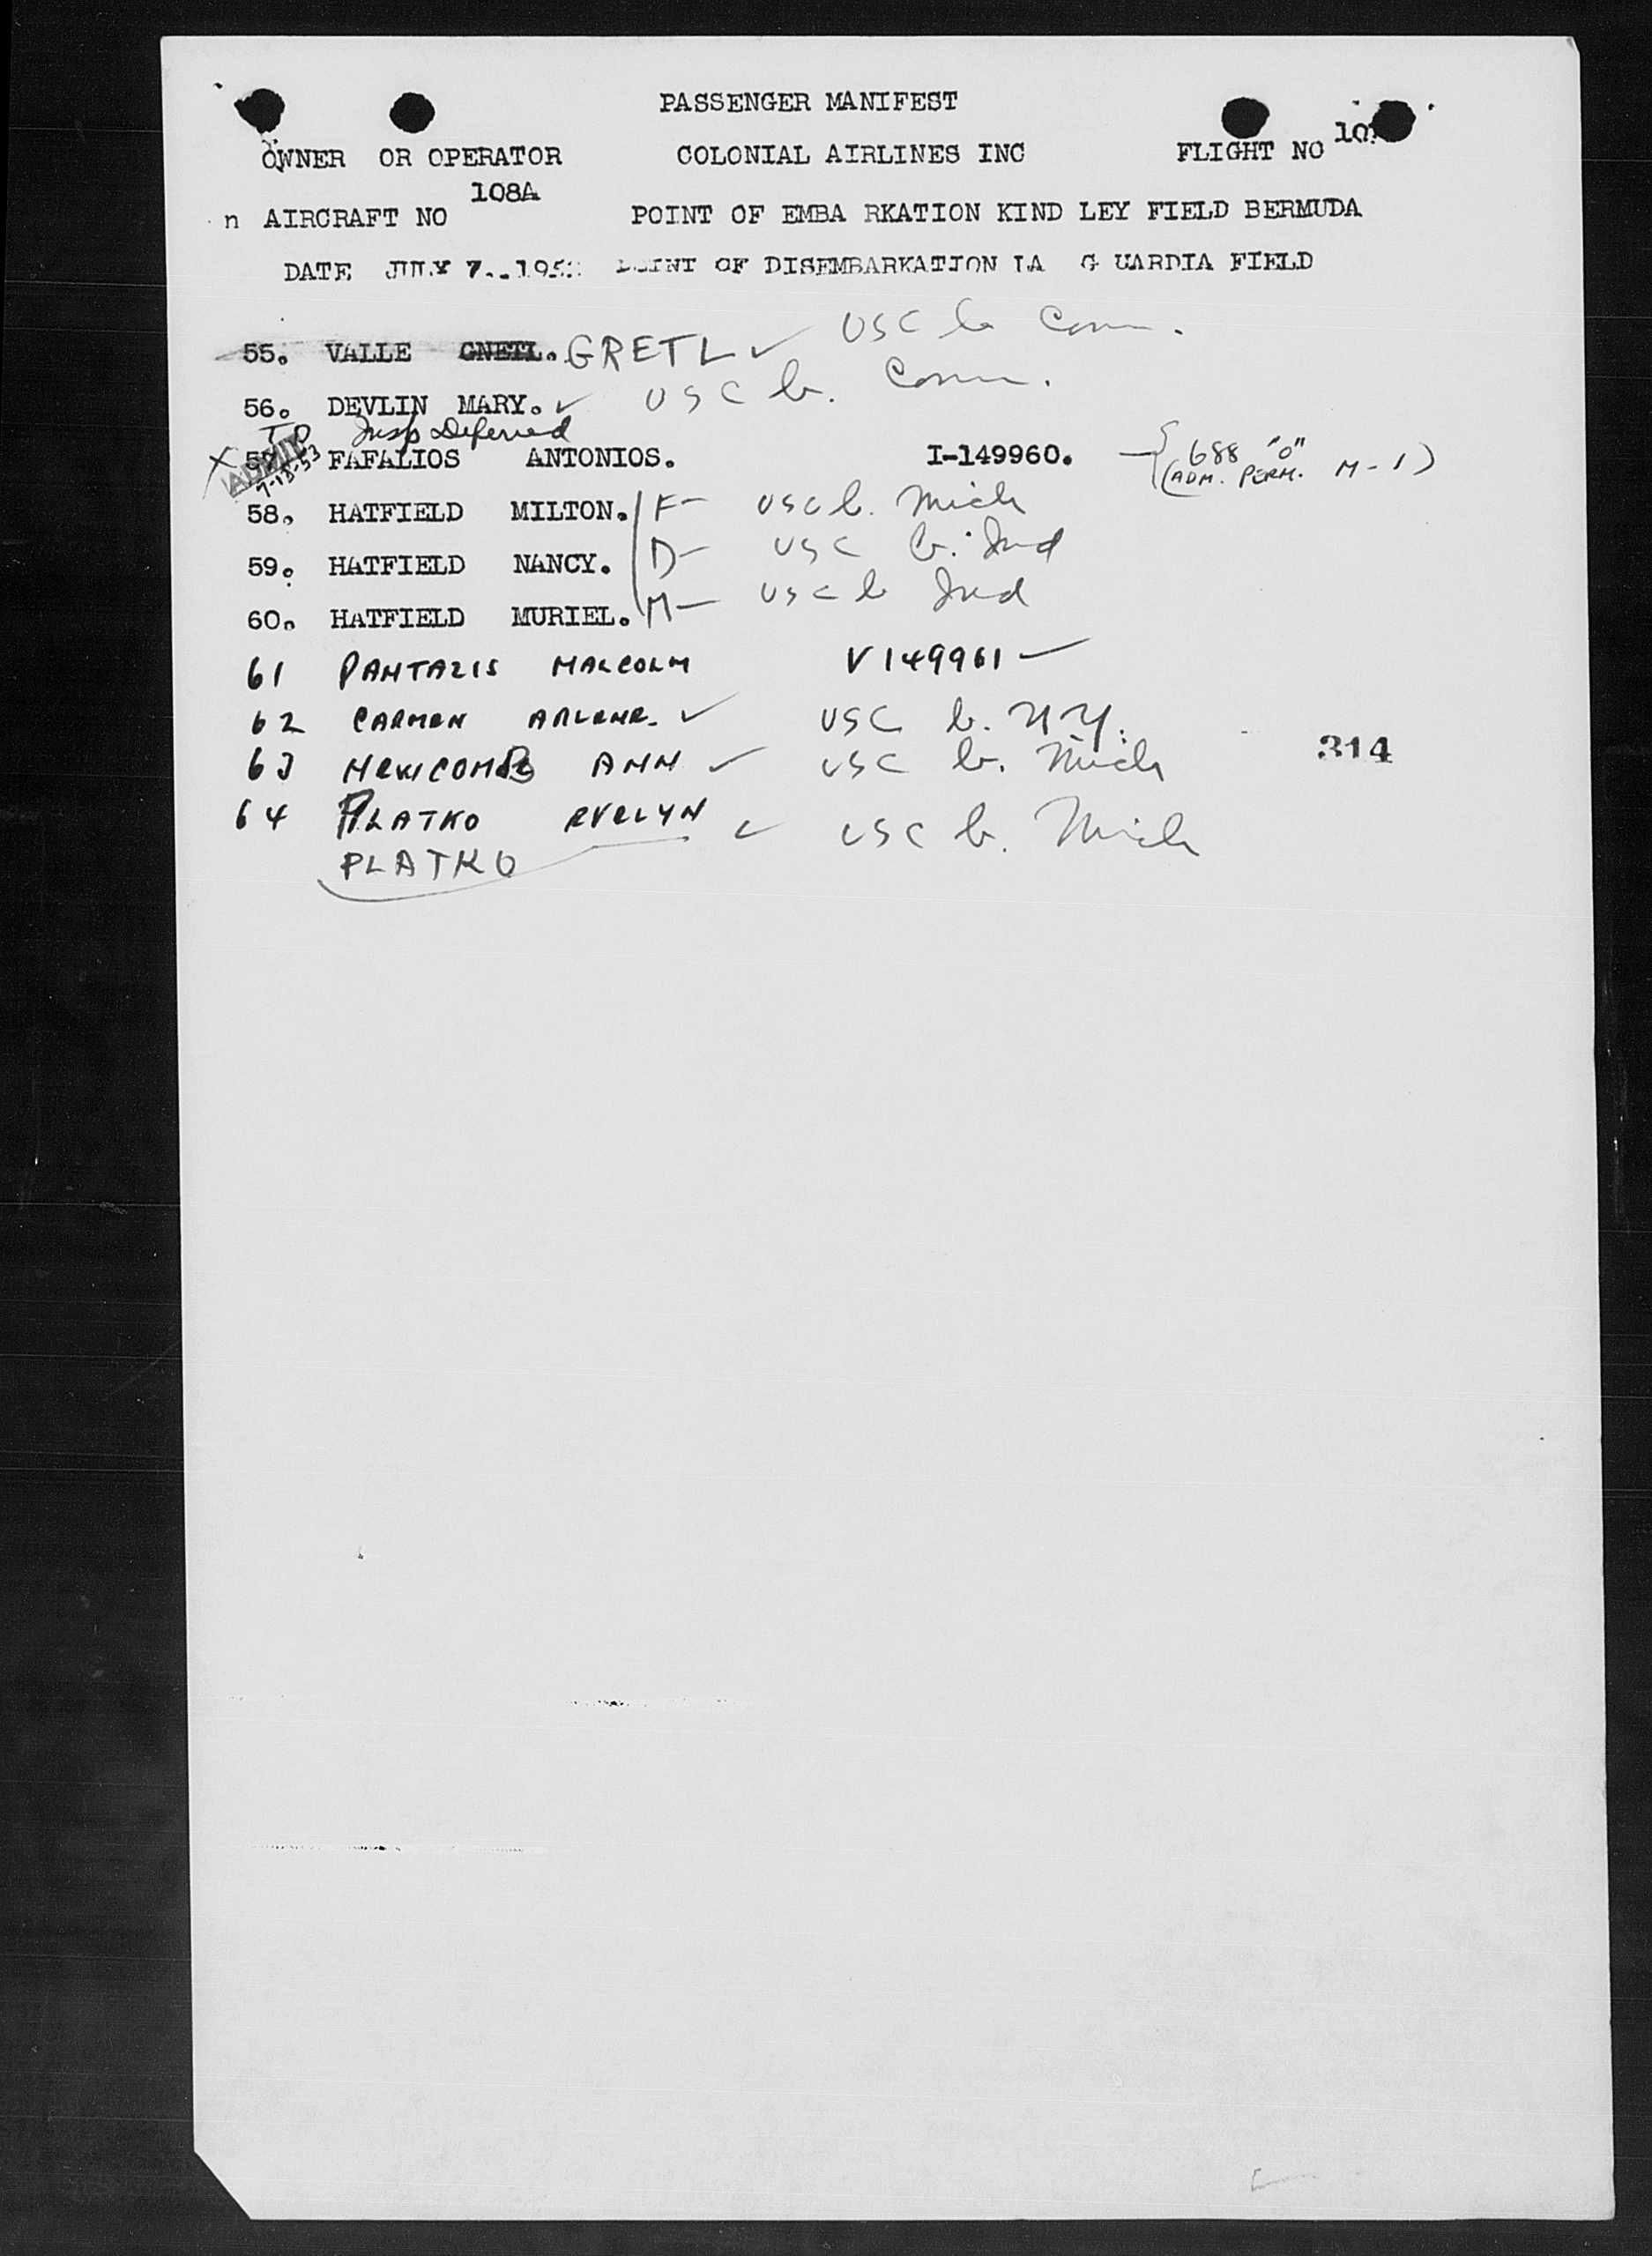 PASSENGER MANIFEST
OWNER OR OPERATOR COLONIAL AIRLINES INC FLIGHT NO
n AIRCRAFT NO 108A POINT OF EMBA RKATION KIND LEY FIELD BERMUDA
DATE JULY 7..195 POINT OF DISEMBARKATION LA G UARDIA FIELD
55. VALLE GNETL. GRETL ✓ USC b Conn.
56. DEVLIN MARY. ✓ USC b. Conn.
TD Insp Deferred
X ADMIT FAFALIOS ANTONIOS. I-149960. 688 "O"
7-13-53 (ADM. PERM. M-1)
58. HATFIELD MILTON. F- USC b. Mich
59. HATFIELD NANCY. D- USC b. Ind
60. HATFIELD MURIEL. M- USC b Ind
61 PANTAZIS MALCOLM V149961
62 CARMEN ARLENE. ✓ USC b. N.Y.
63 NEWCOMB ANN ✓ USC b. Mich
314
64 PLATKO EVELYN ✓ USC b. Mich
PLATKO